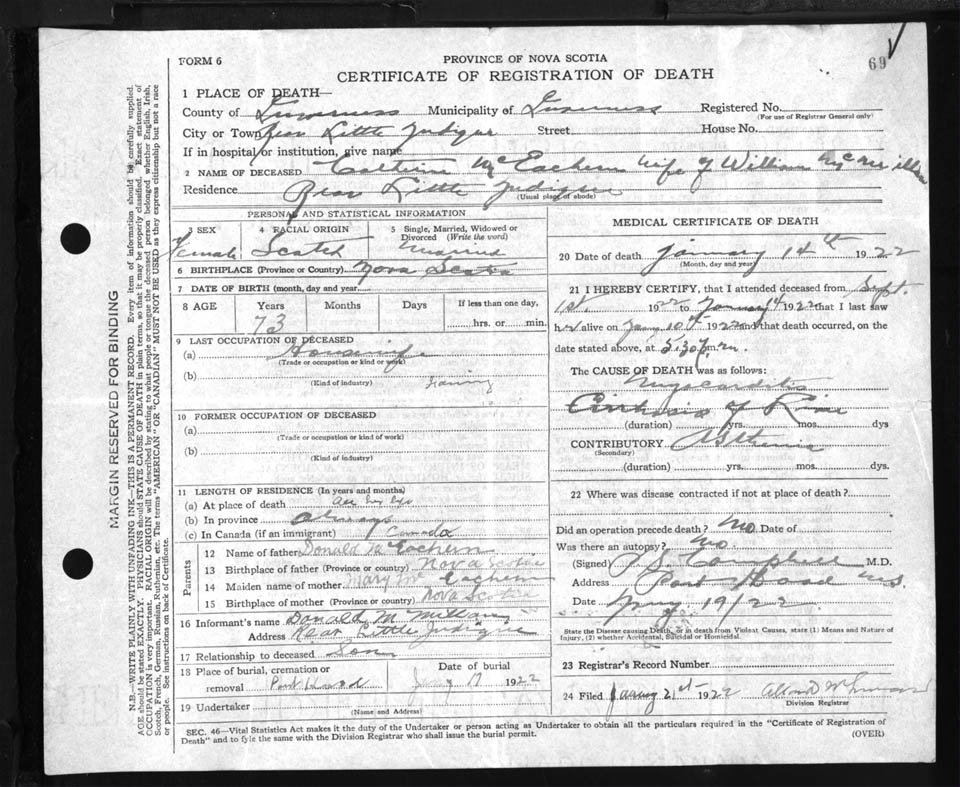 FORM 6
PROVINCE OF NOVA SCOTIA
CERTIFICATE OF REGISTRATION OF DEATH
69
1 PLACE OF DEATH—
County of Inverness Municipality of Inverness Registered No.
(For use of Registrar General only)
City or Town Rear Little Judique Street House No.
If in hospital or institution, give name
2 NAME OF DECEASED McEachern wife of William McMillan
Residence Rear Little Judique
(Usual place of abode)
PERSONAL AND STATISTICAL INFORMATION
3 SEX Female
4 RACIAL ORIGIN Scotch
5 Single, Married, Widowed or Divorced (Write the word) Married
6 BIRTHPLACE (Province or Country) Nova Scotia
7 DATE OF BIRTH (month, day and year)
8 AGE Years Months Days If less than one day,
73 hrs. or min.
9 LAST OCCUPATION OF DECEASED
(a) Housewife
(Trade or occupation or kind of work)
(b) Farming
(Kind of industry)
10 FORMER OCCUPATION OF DECEASED
(a)
(Trade or occupation or kind of work)
(b)
(Kind of industry)
11 LENGTH OF RESIDENCE (In years and months)
(a) At place of death all her life
(b) In province always
(c) In Canada (if an immigrant) Canada
Parents
12 Name of father Donald McEachern
13 Birthplace of father (Province or country) Nova Scotia
14 Maiden name of mother Mary McEachern
15 Birthplace of mother (Province or country) Nova Scotia
16 Informant's name Donald McMillan
Address Rear Little Judique
17 Relationship to deceased Son
18 Place of burial, cremation or removal Port Hood
Date of burial Jany 17 1922
19 Undertaker
(Name and Address)
MEDICAL CERTIFICATE OF DEATH
20 Date of death January 14th 1922
(Month, day and year)
21 I HEREBY CERTIFY, that I attended deceased from Sept.
1st. 1922 to January 14 1922 that I last saw
her alive on Jany 10th 1922 and that death occurred, on
date stated above, at 5.30 p.m.
The CAUSE OF DEATH was as follows:
Myocarditis
Cirrhosis of Liver
(duration) yrs. mos. dys
CONTRIBUTORY Asthenia
(Secondary)
(duration) yrs. mos. dys.
22 Where was disease contracted if not at place of death?
Did an operation precede death? No Date of
Was there an autopsy? No.
(Signed) Campbell M.D.
Address Port Hood N.S.
Date Jany 19/22
State the Disease causing Death, or in death from Violent Causes, state (1) Means and Nature of
Injury, (2) whether Accidental, Suicidal or Homicidal.
23 Registrar's Record Number
24 Filed January 21st 1922
Division Registrar
SEC. 46—Vital Statistics Act makes it the duty of the Undertaker or person acting as Undertaker to obtain all the particulars required in the "Certificate of Registration of
Death" and to file the same with the Division Registrar who shall issue the burial permit.
(OVER)
MARGIN RESERVED FOR BINDING
N.B.—WRITE PLAINLY WITH UNFADING INK—THIS IS A PERMANENT RECORD. Every item of information should be carefully supplied.
AGE should be stated EXACTLY. PHYSICIANS should STATE CAUSE OF DEATH in plain terms, so that it may be properly classified. Exact statement of
OCCUPATION is very important. RACIAL ORIGIN will be described by stating to what people or tongue the deceased person belonged whether English, Irish,
Scotch, French, German, Russian, Ruthenian, etc. The terms "AMERICAN" OR "CANADIAN" MUST NOT BE USED as they express citizenship but not a race
or people. See instructions on back of Certificate.